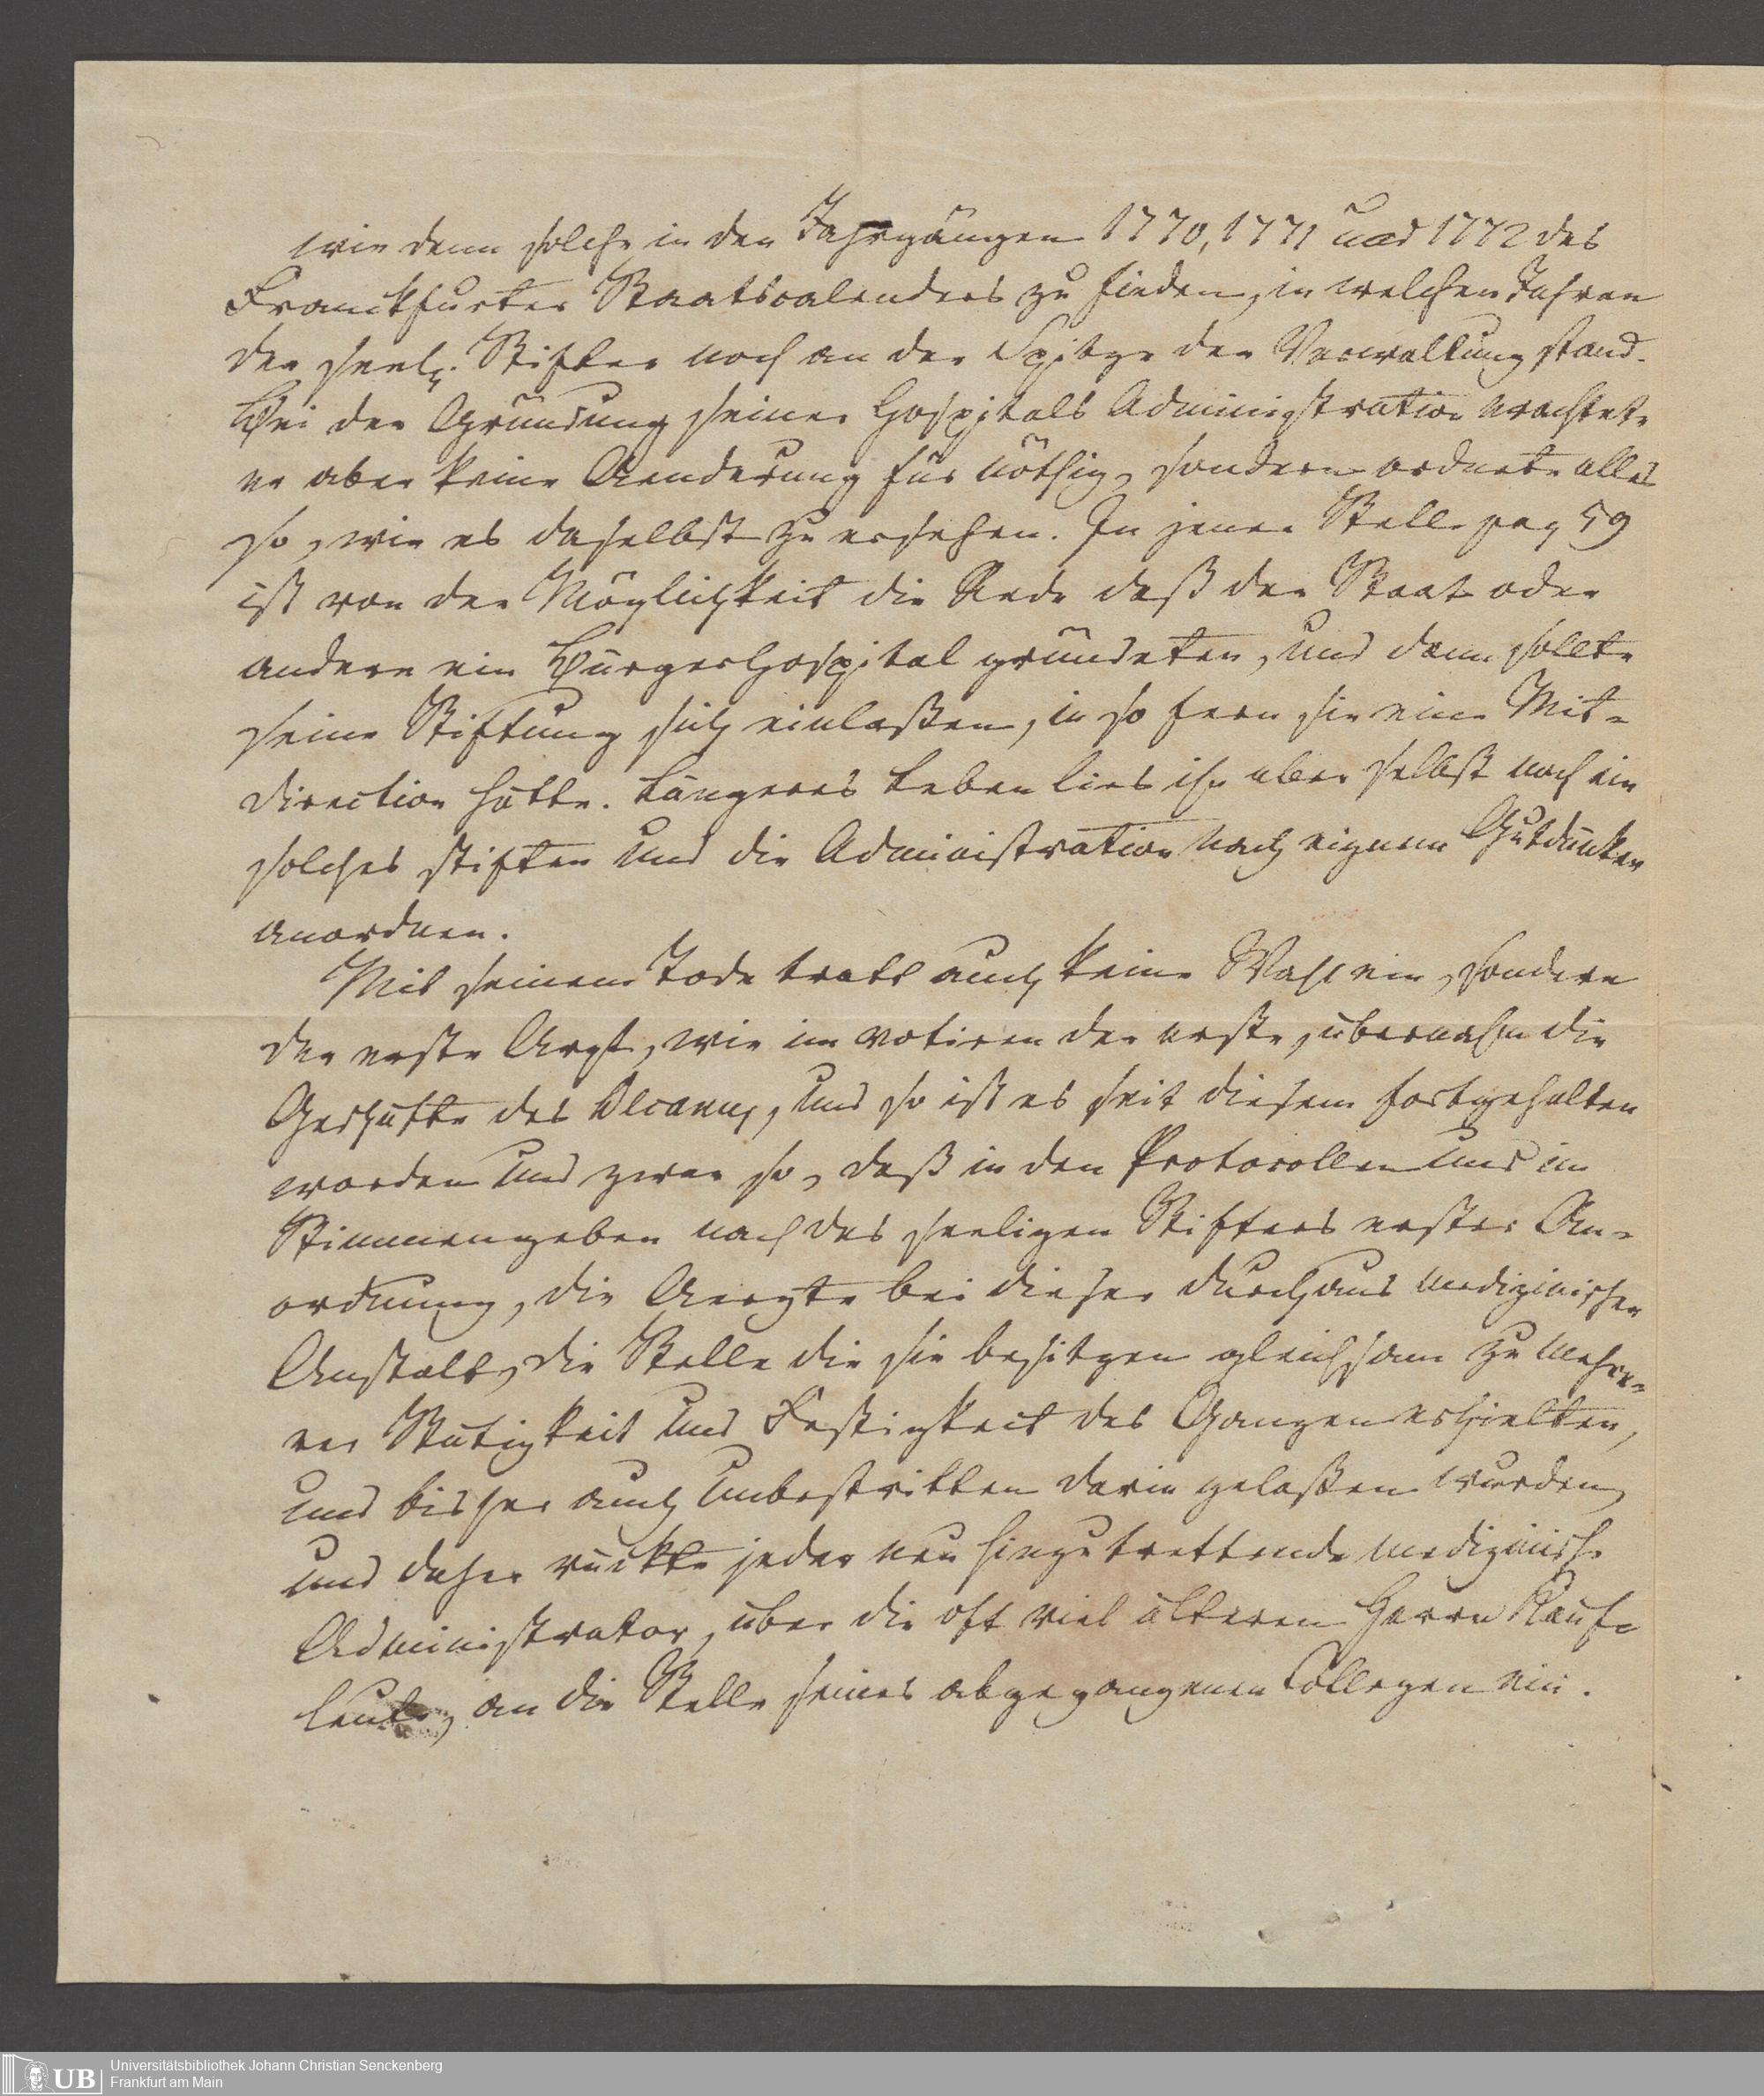 wie denn solche in den Jahrgängen 1770, 1771 und 1772 des
Franckfurter Staatscalenders zu finden, in welchen Jahren
der seel. Stifter noch an der Spitze der Verwaltung stand.
Bei der Gründung seiner Hospitals Administration erachtete
er aber keine Aenderung für nöthig, sondern ordnete alles
so, wie es daselbst zu ersehen. In jener Stelle pag 59
ist von der Möglichkeit die Rede daß der Staat oder
andere ein Bürgerhospital gründeten, und dann sollte
seine Stiftung sich einlaßen, in so fern sie eine Mit-
direction hätte. Längeres Leben lies ihn aber selbst noch ein
solches stiften und die Administration nach eignem Gutdüncken
anordnen.
Mit seinem Tode tratt auch keine Wahl ein, sondern
der erste Arzt, wie im votiren der erste, übernahm die
Geschäfte des Decanus, und so ist es seit diesem fortgehalten
worden und zwar so, daß in den Protocollen und im
Stimmengeben nach des seeligen Stifters erster An-
ordnung, die Aerzte bei dieser durchaus medizinischen
Anstalt, die Stelle die sie besitzen gleichsam zu mehre-
rer Stätigkeit und Festigkeit des Ganzen erhielten,
und bisher auch unbestritten darin gelaßen wurden,
und daher rückte jeder neu hinzutrettende medizinische
Administrator, über die oft viel älteren Herrn Kauf-
leute, an die Stelle seines abgegangenen Collegen ein.
Universitätsbibliothek Johann Christian Senckenberg
Frankfurt am Main
UB